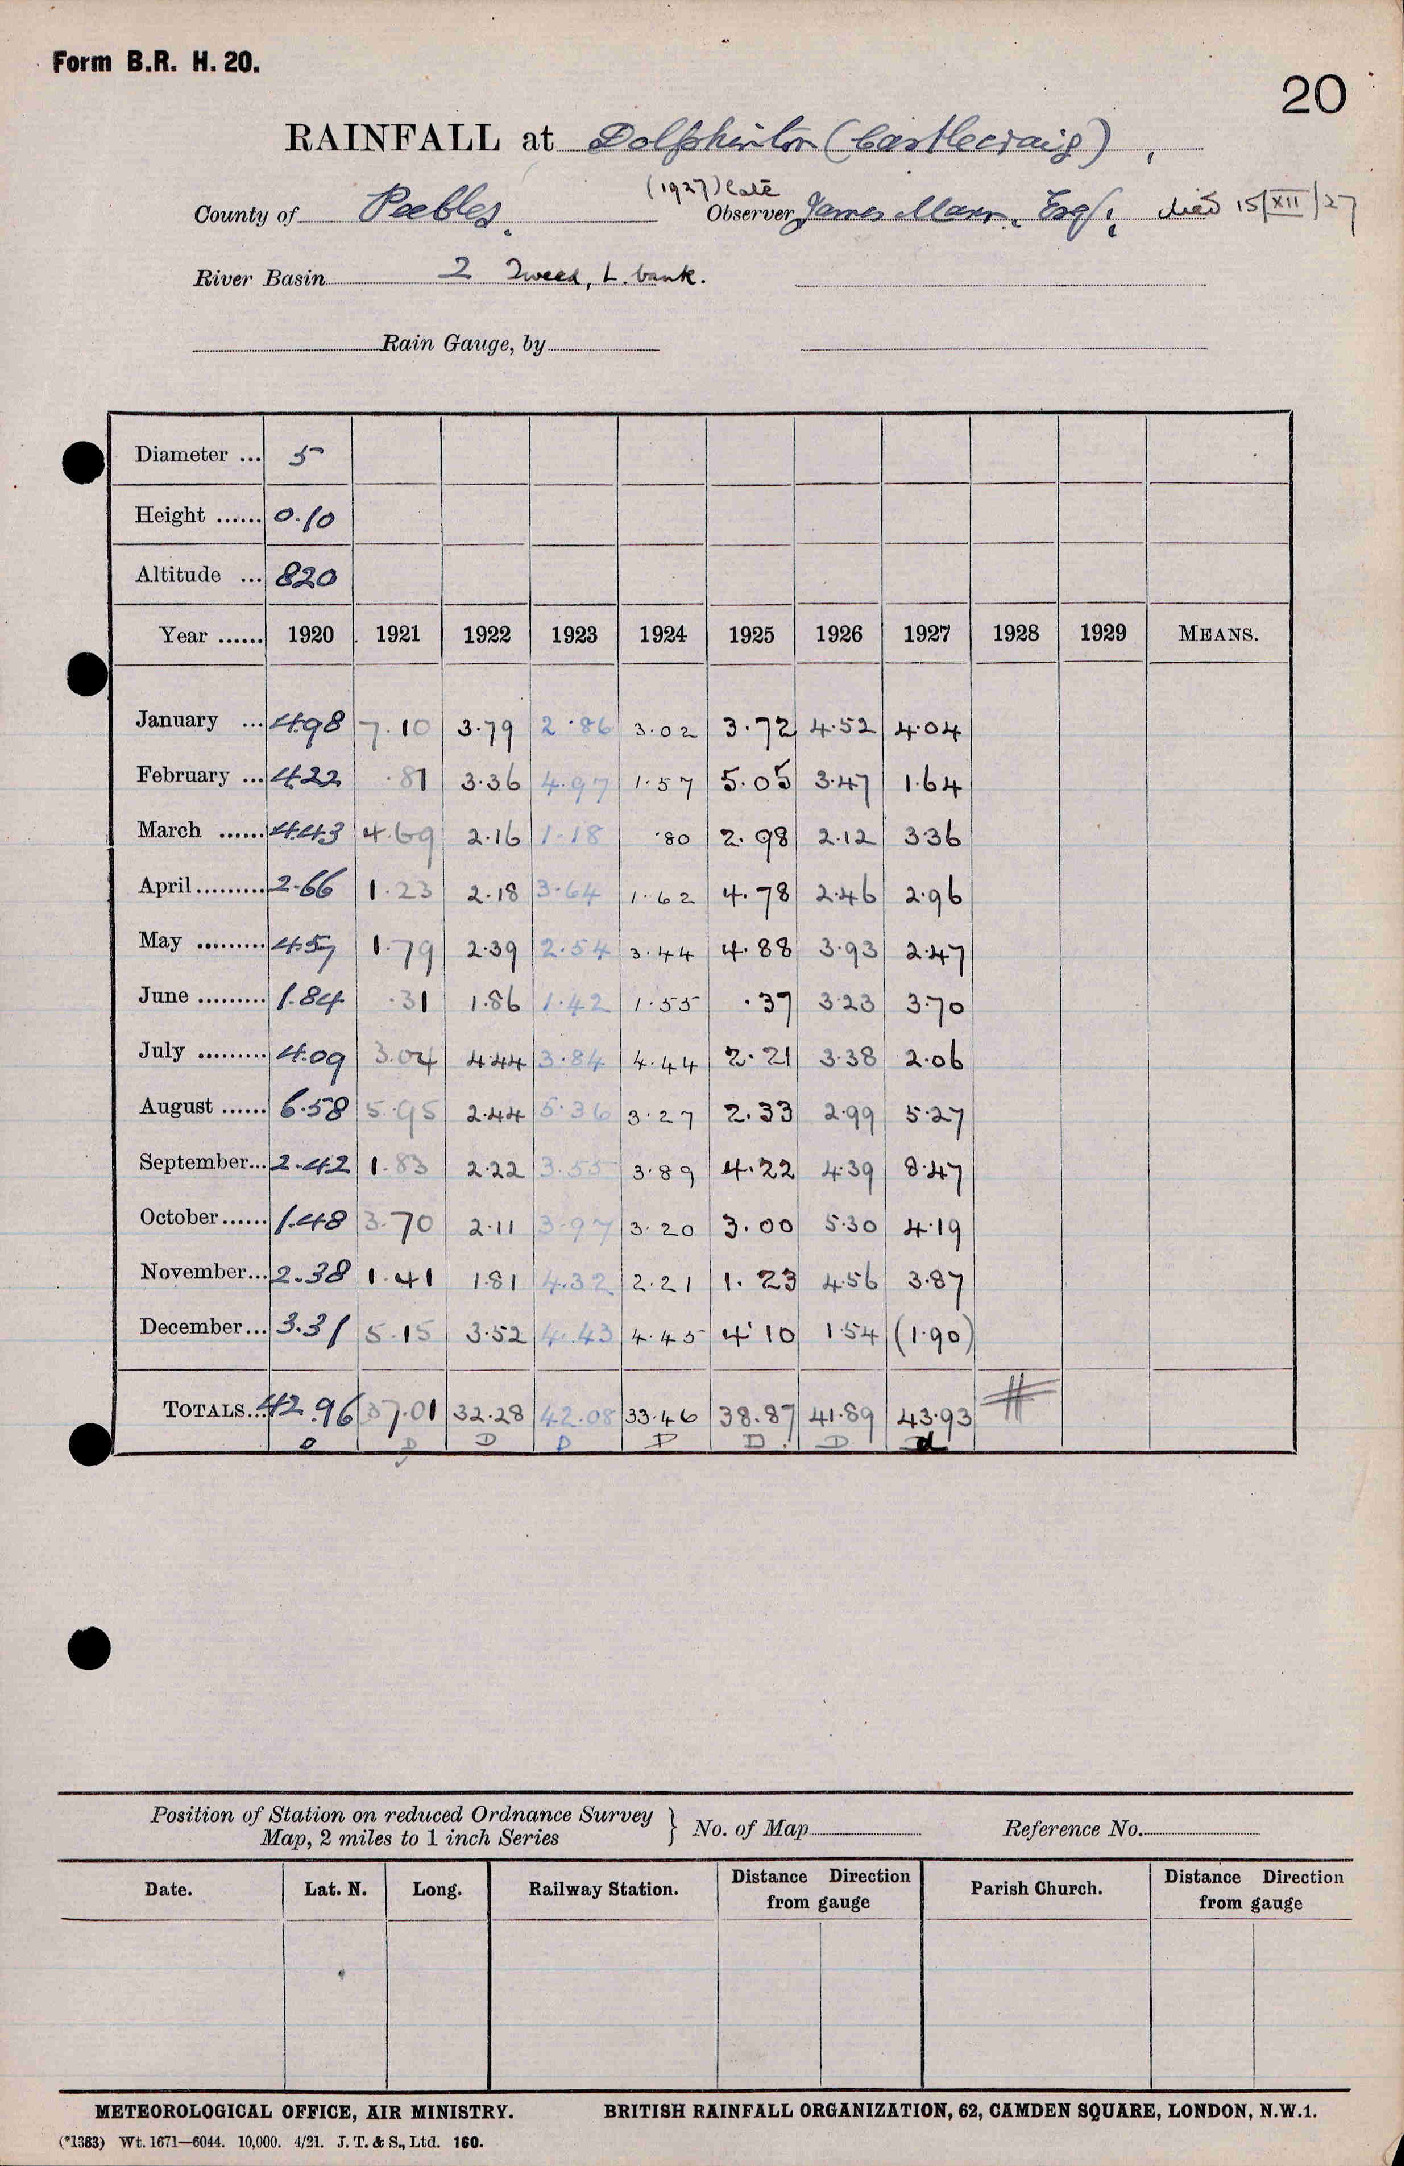 Form B.R. H. 20.
20
RAINFALL at Dolphinton (Castlecraig),
(1927) late
County of Peebles. Observer James Mann, Esq., died 15/XII/27
River Basin 2 Tweed, L. bank.
Rain Gauge, by
Diameter ... 5
Height ...... 0.10
Altitude ... 820
Year ...... 1920 1921 1922 1923 1924 1925 1926 1927 1928 1929 MEANS.
January ... 4.98 7.10 3.79 2.86 3.02 3.72 4.52 4.04
February ... 4.22 .81 3.36 4.97 1.57 5.05 3.47 1.64
March ...... 4.43 4.69 2.16 1.18 .80 2.98 2.12 3.36
April ......... 2.66 1.23 2.18 3.64 1.62 4.78 2.46 2.96
May ......... 4.57 1.79 2.39 2.54 3.44 4.88 3.93 2.47
June ......... 1.84 .31 1.86 1.42 1.55 .37 3.23 3.70
July ......... 4.09 3.04 4.44 3.84 4.44 2.21 3.38 2.06
August ...... 6.58 5.95 2.44 5.36 3.27 2.33 2.99 5.27
September... 2.42 1.83 2.22 3.55 3.89 4.22 4.39 8.47
October...... 1.48 3.70 2.11 3.97 3.20 3.00 5.30 4.19
November... 2.38 1.41 1.81 4.32 2.21 1.23 4.56 3.87
December... 3.31 5.15 3.52 4.43 4.45 4.10 1.54 (1.90)
TOTALS... 42.96 37.01 32.28 42.08 33.46 38.87 41.89 43.93 #
D D D D D D D d
Position of Station on reduced Ordnance Survey
Map, 2 miles to 1 inch Series } No. of Map Reference No.
Date. Lat. N. Long. Railway Station. Distance Direction from gauge Parish Church. Distance Direction from gauge
METEOROLOGICAL OFFICE, AIR MINISTRY. BRITISH RAINFALL ORGANIZATION, 62, CAMDEN SQUARE, LONDON, N.W.1.
(*1383) Wt. 1671—6044. 10,000. 4/21. J. T. & S., Ltd. 160.